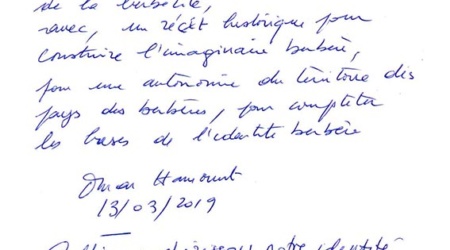 de la berbérité,
avec, un récit historique pour
construire l'imaginaire berbère,
pour une autonomie du territoire des
pays des berbères, pour compléter
les bases de l'identité berbère
Omar
13/03/2019
notre identité